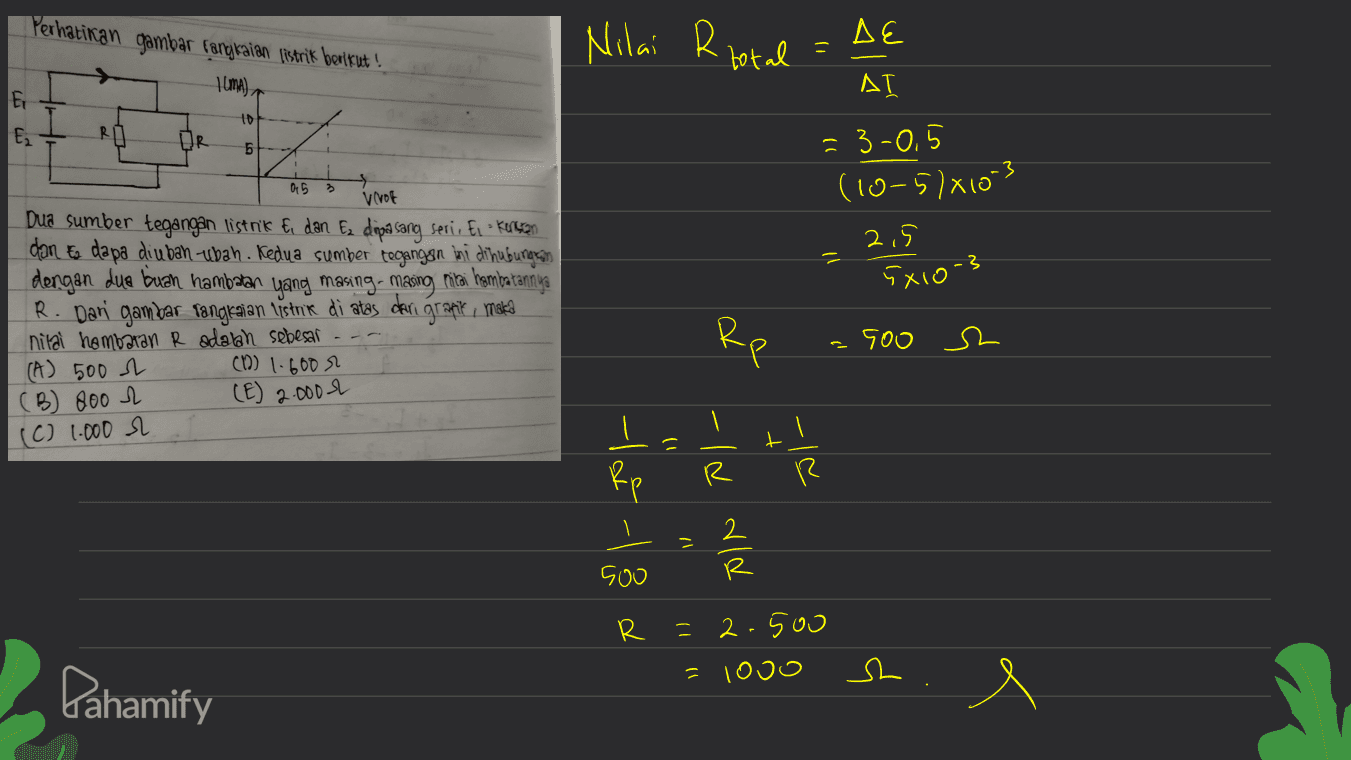 Perhatikan gambar rangkaian listrik berikut !
I(mA)
E1
10
E2
R
R
5
0,5 3
V(volt
Dua sumber tegangan listrik E1 dan E2 dipasang seri, E1 = konstan
dan E2 dapa diubah-ubah. Kedua sumber tegangan ini dihubungkan
dengan dua buah hambatan yang masing-masing nilai hambatannya
R. Dari gambar rangkaian listrik di atas dari grafik, maka
nilai hambatan R adalah sebesar ---
(A) 500 Ω (D) 1.600 Ω
(B) 800 Ω (E) 2.000 Ω
(C) 1.000 Ω
Nilai R total = ΔE / ΔI
= 3-0,5 / (10-5)x10⁻³
= 2,5 / 5x10⁻³
Rp = 500 Ω
1/Rp = 1/R + 1/R
1/500 = 2/R
R = 2.500
= 1000 Ω.
Pahamify